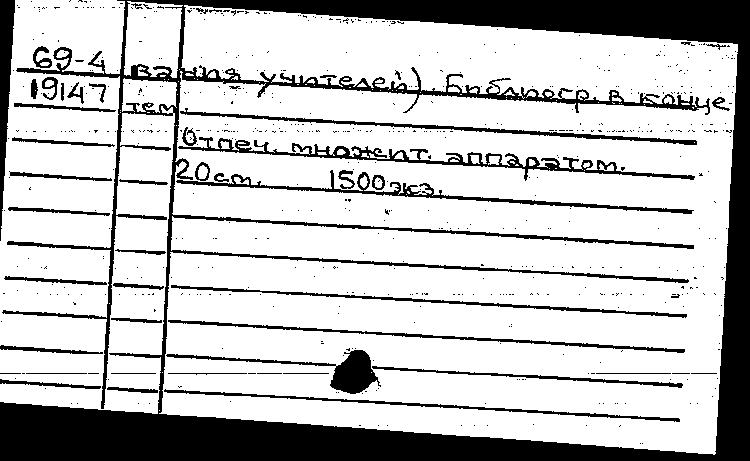 69-4 вания учителей). Библиогр. в конце
19147 тем.
Отпеч. множит. аппаратом.
20 см. 1500 экз.